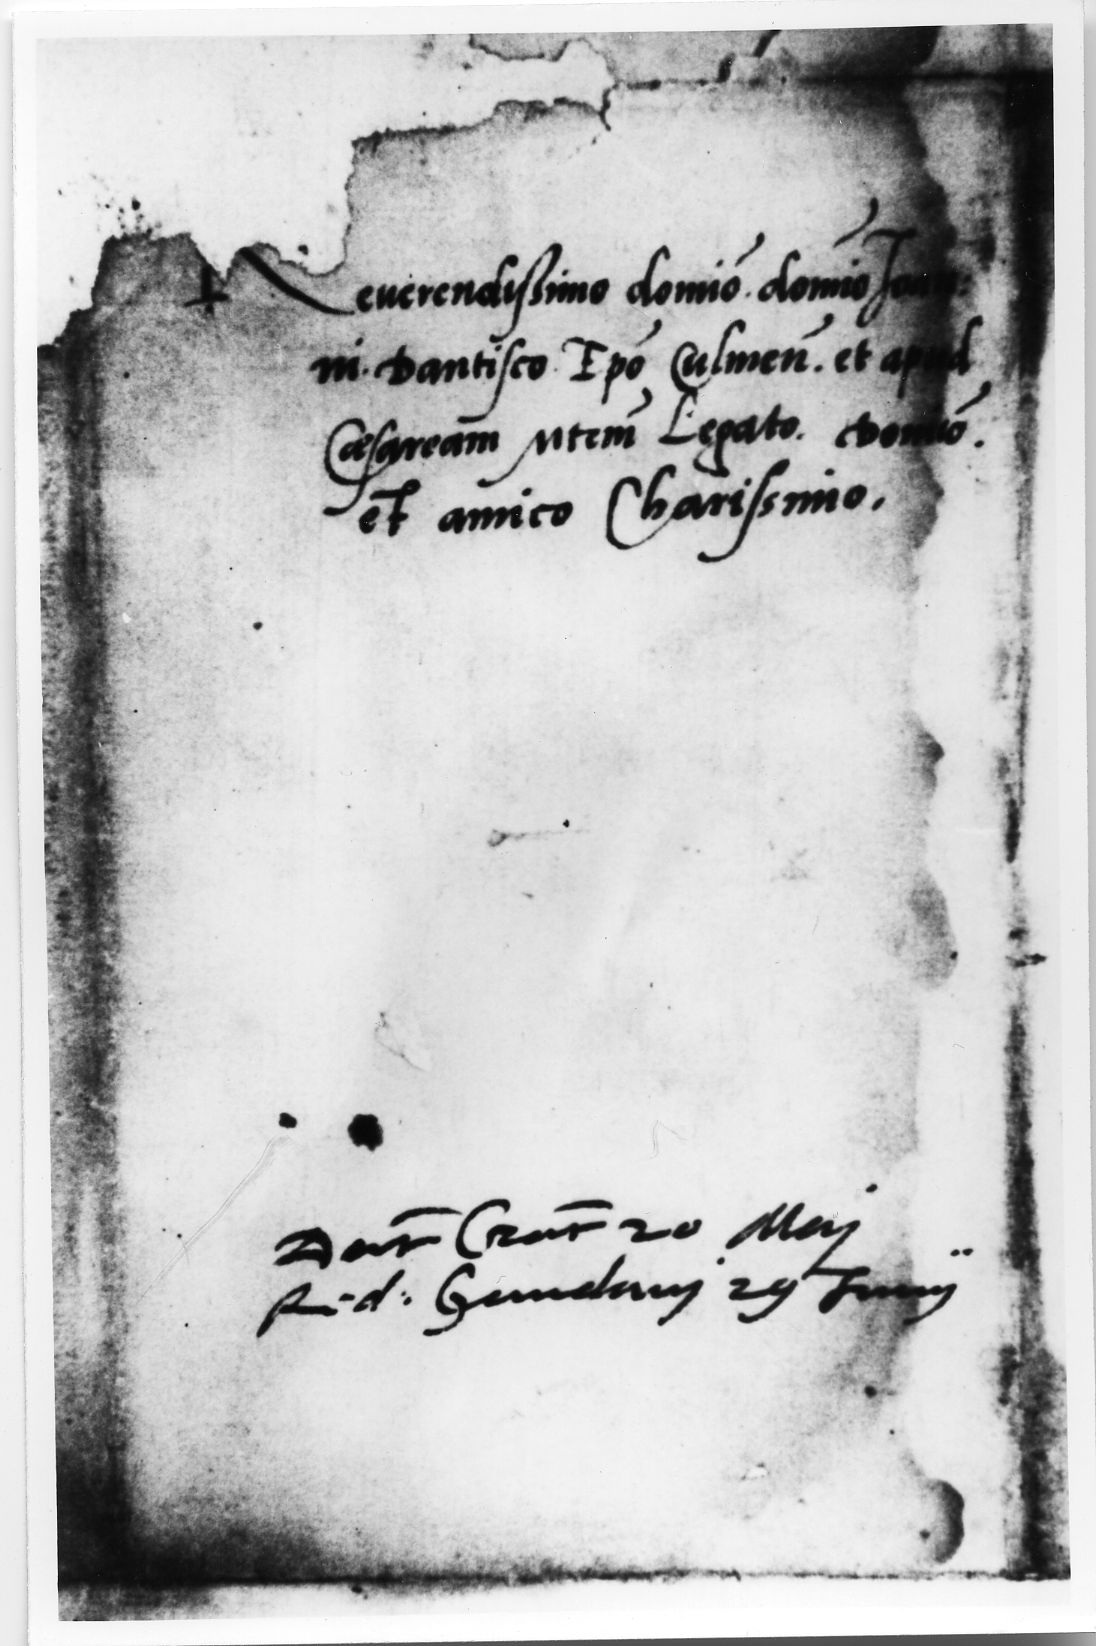 + Reuerendissimo domiō. domiō Joan:
ni. Dantisco Epō Culmeñ. et apud
Cæsaream Mtem̃ Legato. Domiō.
et amico Charissimo.
Dat̄ Crat̄ 20 Maij
R-d: Gandavi 29 Junij